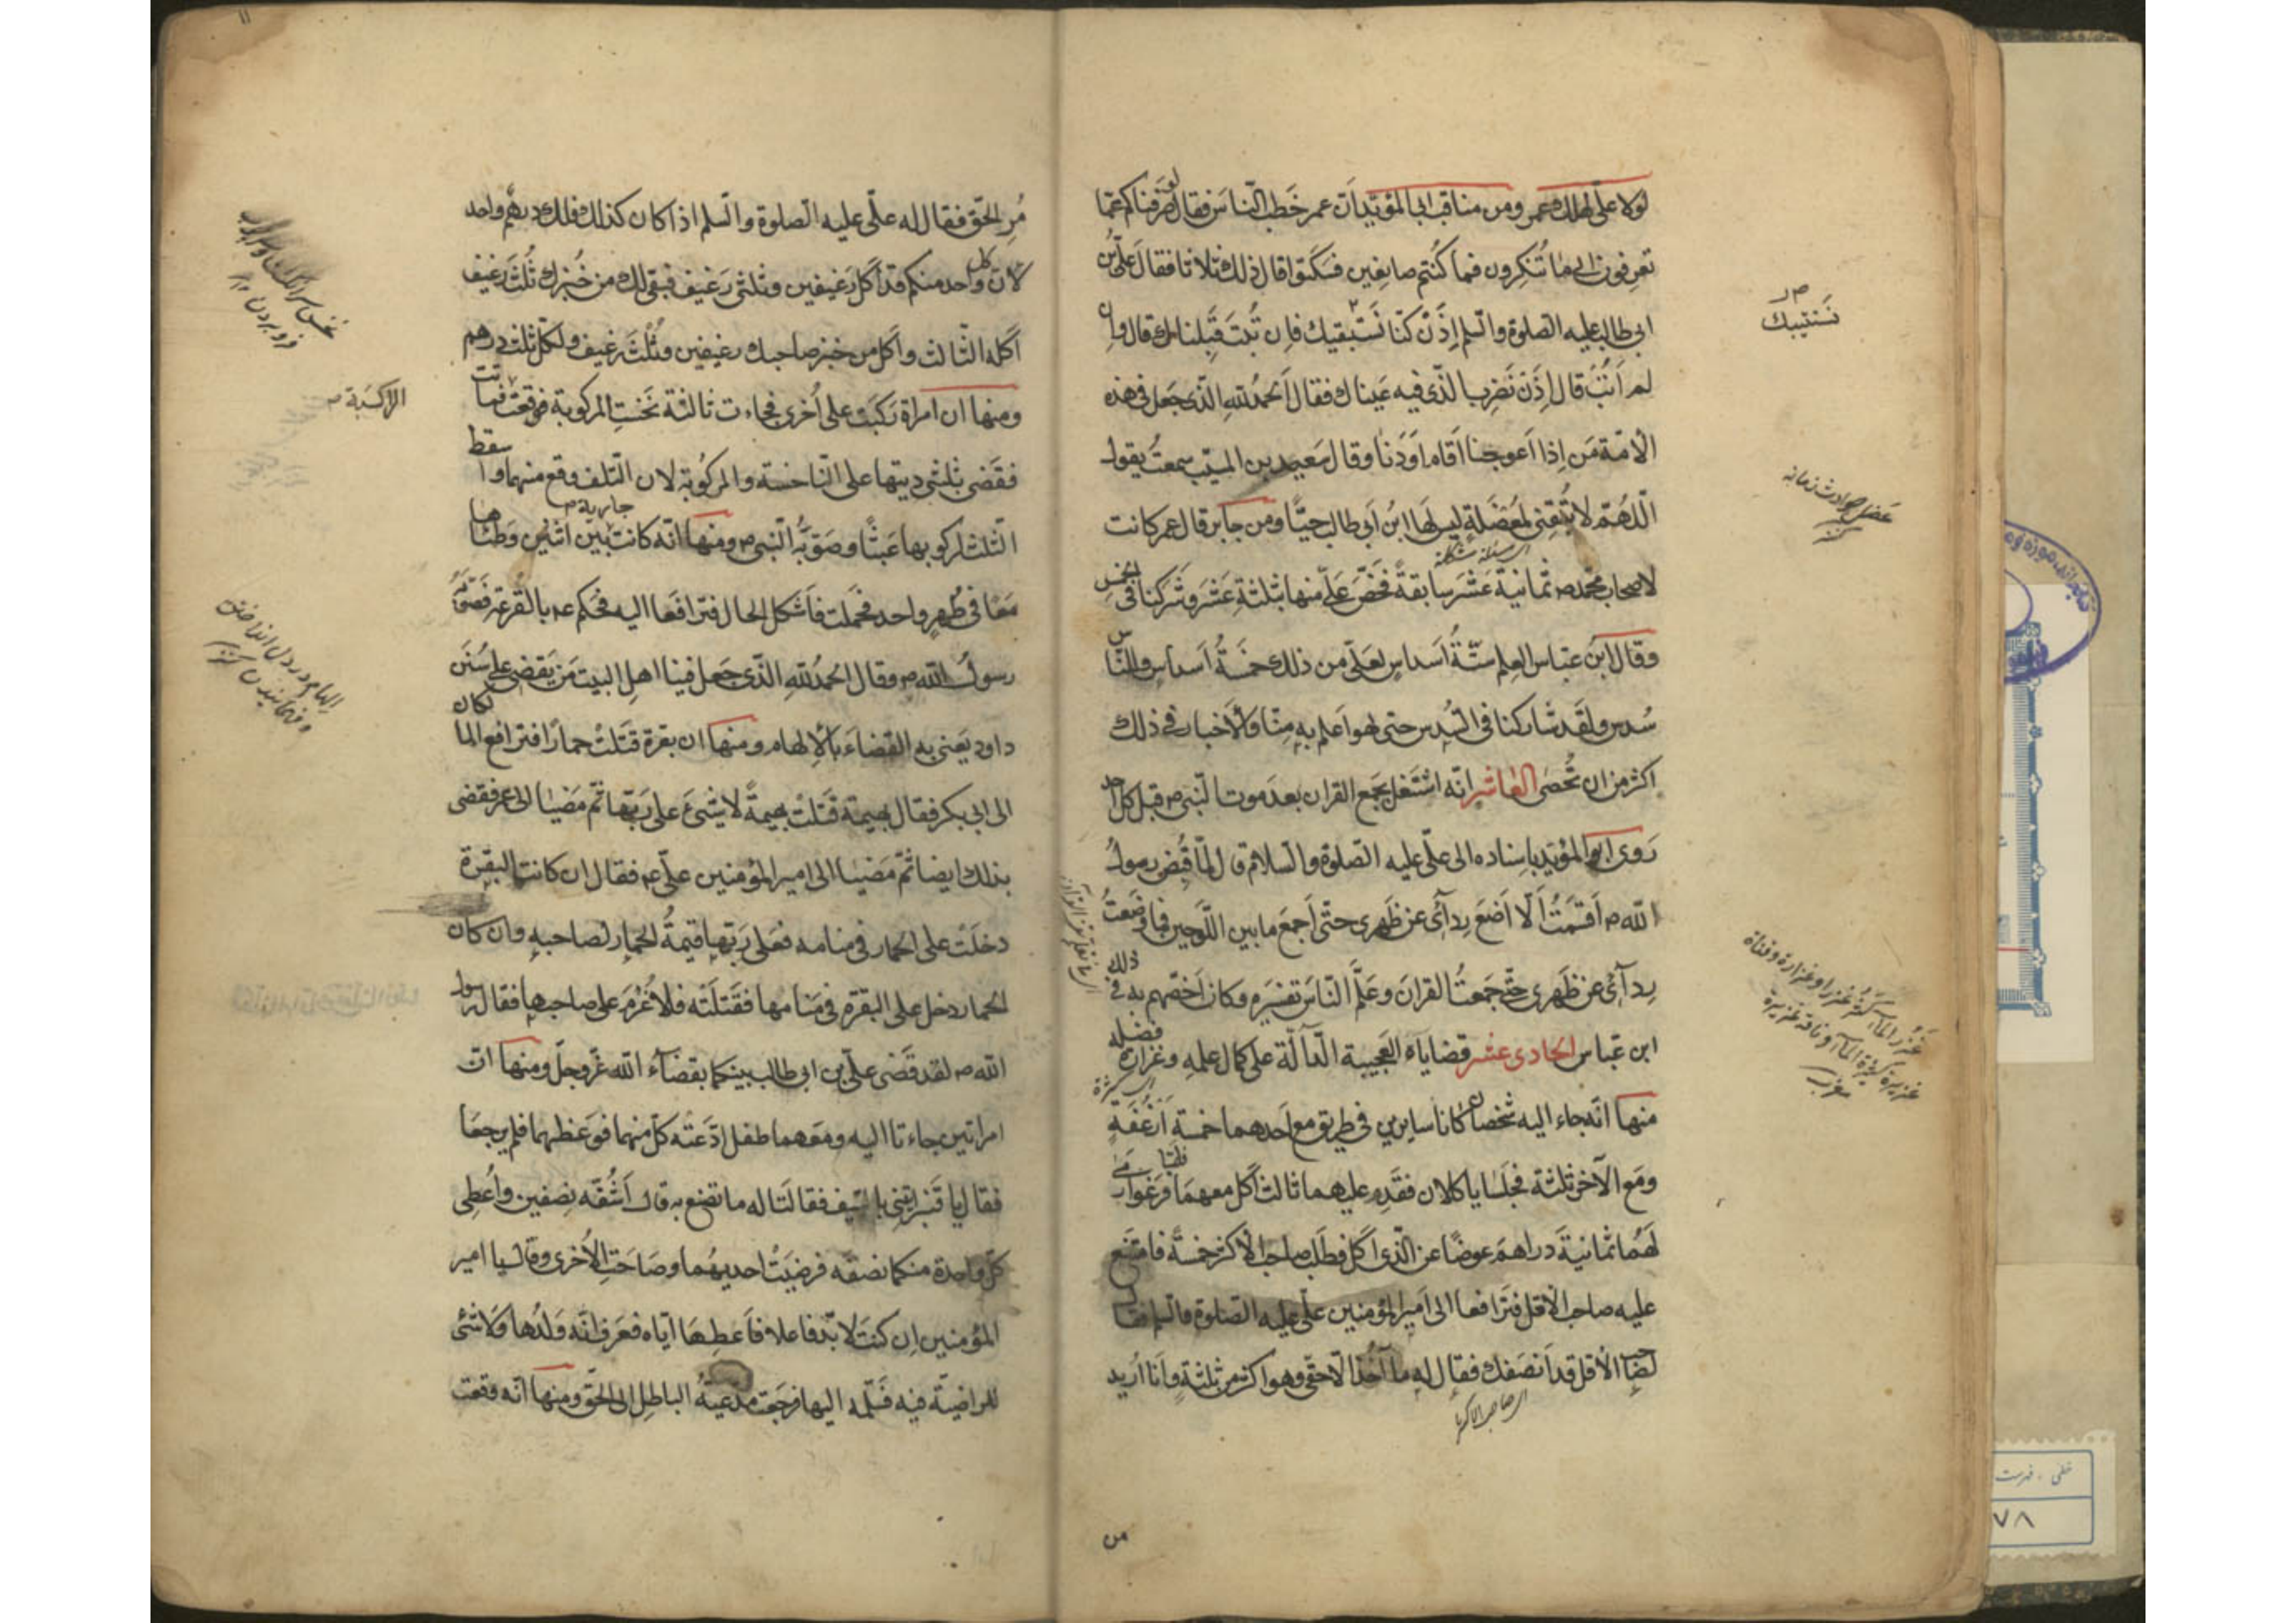 لولا علیّ لهلك عمر ومن مناقب ابی المؤیّد اَنّ عمر خَطَب النّاسَ فقال لو صَرَفناكم عمّا
تعرِفون الی ما تُنكِرون فما كُنتم صانِعین فسَكَتوا قال ذلك ثلاثا فقال علیّ بن
ابی طالب علیه الصلوة والسلم اِذَنْ كنّا نَستبقیك فاِن تُبتَ قَبِلناك قال واِن
لم اَتُبْ قال اِذَنْ نَضرِب الّذی فیه عَیناك فقال اَلحمدُ للهِ الّذی جَعَل فی هذه
الاُمّة مَن اِذا اعوججنا اَقام اَوَدَنا وقال سَعید بن المسیّب سمعتُ یقول
اللّهمّ لا تُبقِنی لمُعضَلةٍ لیس لَها ابنُ اَبی طالب حیًّا ومن جابر قال عمر كانت
ای مسئلة مشكلة
لاصحاب محمّد ص ثمانیة عَشَر سابقةً فخَصّ علیّ منها بثلثةِ عَشَر وشَرَكنا فی الخمس
وقال ابن عبّاس العِلم ستّةُ اَسداسٍ لعَلیّ من ذلك خمسةُ اَسداسٍ وللنّاس
سُدس ولقد شاركنا فی السُدس حتی لهو اَعلم بهِ مِنّا والاَخبار فی ذلك
اكثر من ان تُحصٰی العاشر انّه اشتَغل بجَمع القران بعدَ موت النّبی ص قبل كل احد
رَوی ابو المؤیّد باسناده الی علیّ علیه الصّلوة والسلام قال لمّا قُبِض رسولُ
اللّه ص اَقسَمتُ اَلّا اَضَع رِدآئی عن ظَهری حتّی اَجمعَ ما بین اللّوحین فما وضعتُ
رِدآئی عن ظَهری حتّی جَمَعتُ القرانَ وعَلّمَ النّاسَ تفسیره وكان اَخصّهم به فی ذلك
ابن عبّاس الحادی عشر قضایاه العجیبة الدّآلّة علی كمال علمِهِ وغزارة فضله
ای كثرة
منها انّه جاء الیه شخصان كانا سایرین فی طریق مع اَحدهما خمسة اَرغُفةٍ
ومع الآخر ثلثة فجلسا یاكلان فقَدِم علیهما ثالث اَكَل معهما فلمّا فرغوا رمی
لَهُما ثمانیةَ دراهمَ عوضًا عن الّذی اَكل فطَلَب صاحب الاكثر خمسةً فامتنع
علیه صاحب الاقل فتَرافعا الی امیر المؤمنین علیّ علیه الصّلوة والسلم فقال
لصاحب الاقل قد اَنصَفك فقال له ما آخُذ الّا حقّی وهو اكثر من ثلثةٍ وانا ارید
ای صاحب الاكثر
نَستتیبك
غَزُر الماء كَثُر غَزرا وغزارة وقناة
غزیرة كثیرة الماء وناقة غزیرة
مغرب
من
مُرّ الحقّ فقال له علیّ علیه الصلوة والسلم اذا كان كذلك فلك درهم واحد
لانّ كل واحد منكم قد اَكل رَغیفین وثلثی رَغیف فبقی لك من خُبزك ثُلث رَغیف
اَكله الثّالث واَكل من خبز صاحبك رغیفین وثُلث رغیف ولكلّ ثلث درهم
ومنها ان امراة رَكبَت علی اُخری فجاءت ثالثة نَخَستِ المركوبة فوقعت فماتت
الراكبة ص
فقَضی بثلثی دیتها علی النّاخسة والمركوبة لان التّلف وقع منهما واسقط
الثّلث لركوبها عَبَثًا وصَوّبَه النّبی ص ومنها انّه كانت جاریة بین اثنین وَطئاها
معًا فی طُهرٍ واحد فحَمَلت فاَشكل الحال فترافعا الیه فحكم ع بالقُرعة فصوّبه
رسولُ اللّه ص وقال الحمدُ للهِ الّذی جَعل فینا اهل البیت مَن یَقضی علی سُنَن
داود یَعنی به القضاءَ بالاِلهام ومنها ان بقرة قَتَلتْ حمارًا فترافع المالكان
الی ابی بكر فقال بهیمة قَتلتْ بهیمةً لا شیئَ علی رَبّها ثمّ مَضیٰا الی عمر فقضی
بذلك ایضا ثمّ مَضیٰا الی امیر المؤمنین علیّ ع فقال ان كانت البقرة
دخلَتْ علی الحمار فی منامه فعلی رَبّها قیمةُ الحمار لصاحبه وان كان
الحمار دخل علی البقرة فی مَنامها فقَتلَته فلا غُرْمَ علی صاحبها فقال رسول
اللّه ص لقد قَضی علیّ بن ابی طالب بینكما بقضآء اللّه عزّ وجلّ ومنها انّ
امراتین جاءتا الیه ومعهما طفل ادّعَتْه كلّ منهما فوَعظهما فلم یرجعا
فقال یا قَنبر ایتِنی بالسّیف فقالتا له ما تصنع به قال اَشُقّه نِصفین واُعطِی
كلّ واحدة منكما نصفه فرضِیَتْ احدیهُما وصاحَتِ الاُخری وقالت یا امیر
المؤمنین اِن كنتَ لا بُدّ فاعلا فاَعطِها ایّاه فعَرف انّه وَلدُها ولا شئی
للراضیة فیه فسَلّمه الیها فرجَعت مدّعیةُ الباطل الی الحقّ ومنها انّه وقعت